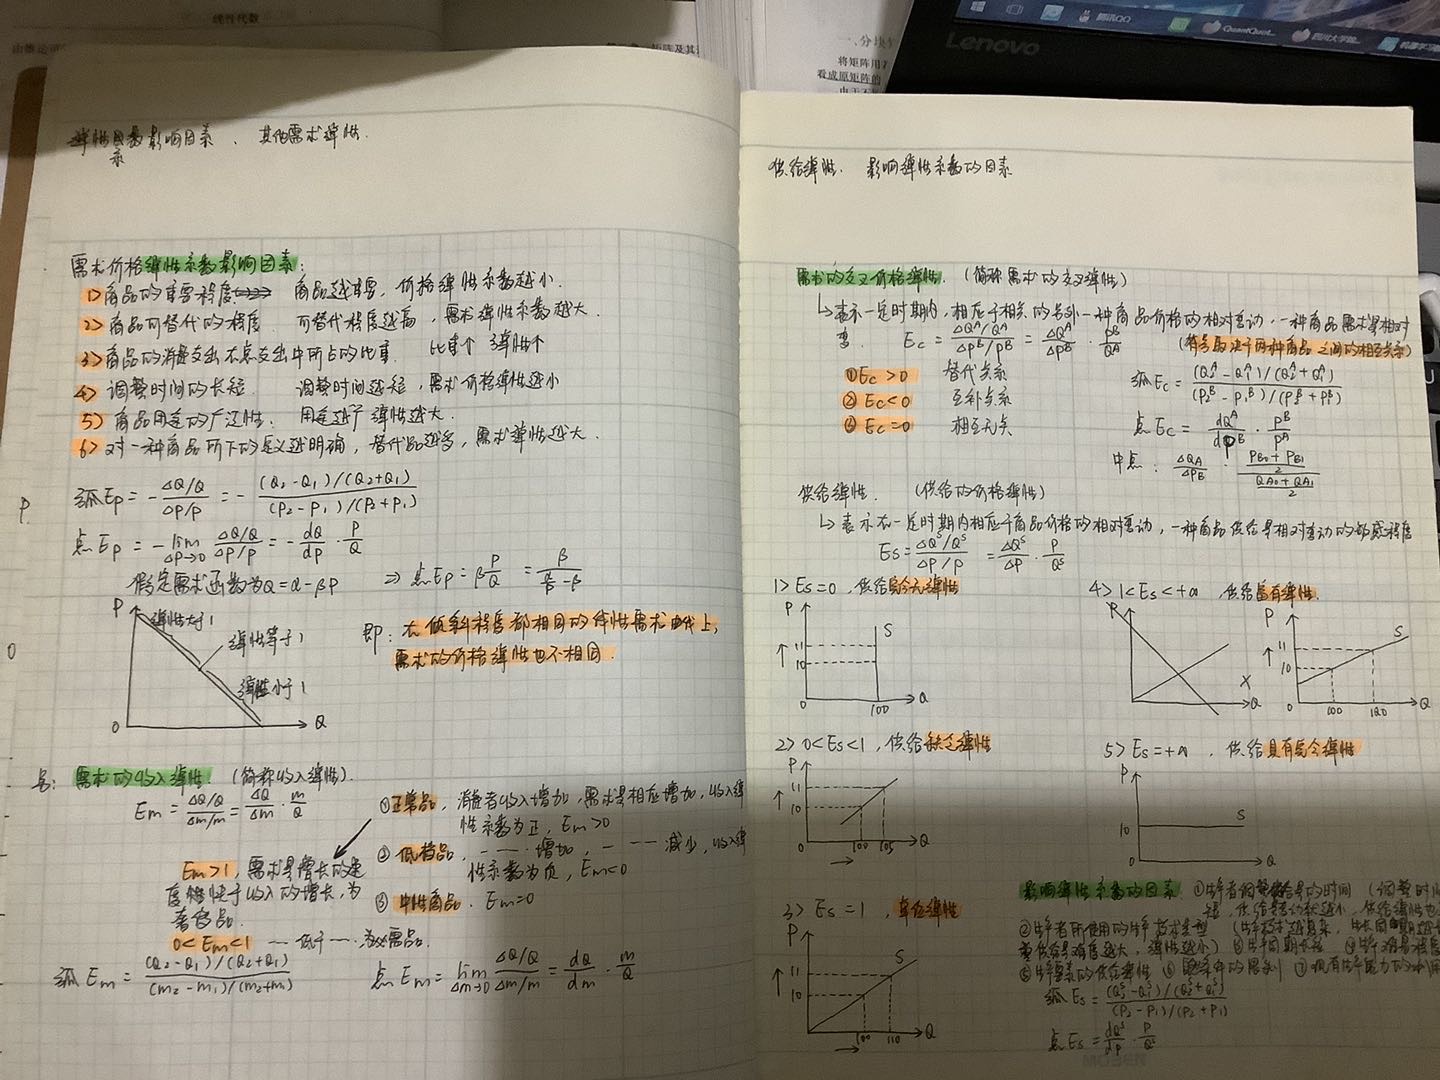 线性代数
矩阵及其
一、分块
将矩阵用
看成原矩阵的
Lenovo
腾讯QQ
QuantQuot...
四川大学能...
弹性系数影响因素、其他需求弹性.
需求价格弹性系数影响因素:
1> 商品的重要程度 商品越重要, 价格弹性系数越小.
2> 商品可替代的程度. 可替代程度越高, 需求弹性系数越大.
3> 商品的消费支出在总支出中所占的比重. 比重↑ 弹性↑
4> 调整时间的长短. 调整时间越短, 需求价格弹性越小
5> 商品用途的广泛性. 用途越广弹性越大.
6> 对一种商品所下的定义越明确, 替代品越多, 需求弹性越大.
弧Ep = -(ΔQ/Q)/(ΔP/P) = -((Q2-Q1)/(Q2+Q1))/((P2-P1)/(P2+P1))
点Ep = -lim ΔP→0 (ΔQ/Q)/(ΔP/P) = -dQ/dP · P/Q
假定需求函数为Q=α-βP ⇒ 点Ep=β P/Q = β/(α/Q-β)
P
弹性大于1
弹性等于1
弹性小于1
0 Q
即: 在倾斜程度都相同的线性需求曲线上,
需求的价格弹性也不相同.
另: 需求的收入弹性 (简称收入弹性).
Em = (ΔQ/Q)/(Δm/m) = ΔQ/Δm · m/Q
①正常品, 消费者收入增加, 需求量相应增加, 收入弹
性系数为正, Em>0
② 低档品, -----增加, -----减少, 收入弹
性系数为负, Em<0
③ 中性商品. Em=0
Em>1, 需求量增长的速
度快于收入的增长, 为
奢侈品.
0<Em<1 ---低于---为必需品.
弧Em = ((Q2-Q1)/(Q2+Q1))/((m2-m1)/(m2+m1)) 点Em = lim Δm→0 (ΔQ/Q)/(Δm/m) = dQ/dm · m/Q
供给弹性. 影响弹性系数的因素
需求的交叉价格弹性. (简称需求的交叉弹性)
↳表示一定时期内, 相应于相关的另外一种商品价格的相对变动, 一种商品需求量相对
变. Ec = (ΔQᴬ/Qᴬ)/(ΔPᴮ/Pᴮ) = ΔQᴬ/ΔPᴮ · Pᴮ/Qᴬ (符号取决于两种商品之间的相互关系)
①Ec>0 替代关系
②Ec<0 互补关系
③Ec=0 相互无关
弧Ec = ((Q2ᴬ-Q1ᴬ)/(Q2ᴬ+Q1ᴬ))/((P2ᴮ-P1ᴮ)/(P2ᴮ+P1ᴮ))
点Ec = dQᴬ/dPᴮ · Pᴮ/Pᴬ
中点: ΔQA/ΔPB · ((PB0+PB1)/2)/((QA0+QA1)/2)
供给弹性. (供给的价格弹性)
↳表示在一定时期内相应于商品价格的相对变动, 一种商品供给量相对变动的敏感程度
Es = (ΔQˢ/Qˢ)/(ΔP/P) = ΔQˢ/ΔP · P/Qˢ
1> Es=0, 供给完全无弹性
P S
↑ 11
10
0 100 Q
4> 1<Es<+∞, 供给富有弹性.
P
Q
X
P S
↑ 11
10
0 100 120 Q
2> 0<Es<1, 供给缺乏弹性
P
↑ 11
10
0 100 105 Q
→
5> Es=+∞, 供给具有完全弹性
P
10 S
0 Q
3> Es=1, 单位弹性
P S
↑ 11
10
0 100 110 Q
→
影响弹性系数的因素 ①生产者调整供给量的时间 (调整时间
短, 供给变动越小, 供给弹性也
②生产者所使用的生产技术类型 (生产技术越复杂, 生长周期越长
供给量难度越大, 弹性越小) ③生产周期长短 ④生产难易程度
⑤生产要素的供给弹性 ⑥ ⑦现有生产能力的利用
弧Es = ((Q2ˢ-Q1ˢ)/(Q2ˢ+Q1ˢ))/((P2-P1)/(P2+P1))
点Es = dQˢ/dP · P/Qˢ